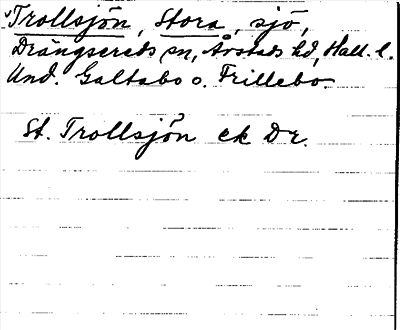 Trollsjön, Stora, sjö,
Drängsereds sn, Årstads hd, Hall. l.
Und. Galtabo o. Frillebo.
St. Trollsjön ek Dr.